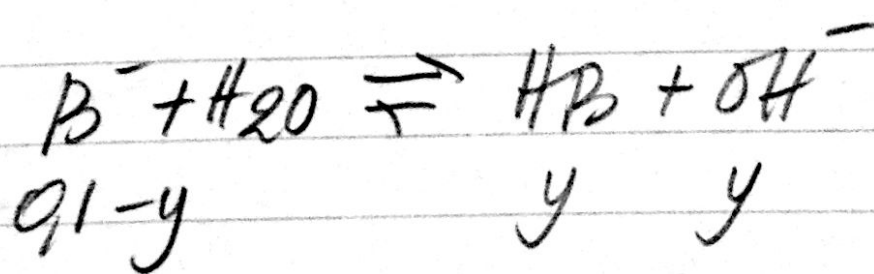 B⁻ + H2O ⇌ HB + OH⁻
0,1-y y y